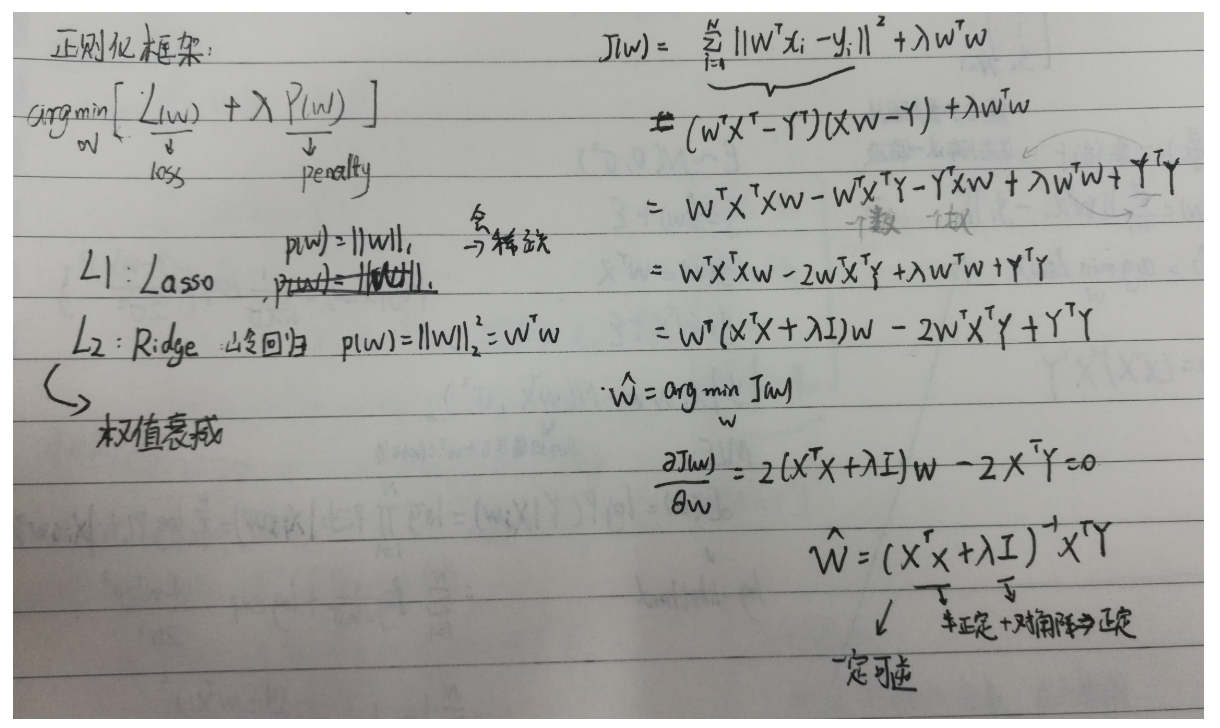 正则化框架:
argmin[ L(w) + λ P(w) ]
w
loss
penalty
L1: Lasso
p(w) = ||w||₁ 会→稀疏
L2: Ridge 岭回归 p(w) = ||w||₂² = wᵀw
权值衰减
J(w) = Σᵢ₌₁ᴺ ||wᵀxᵢ - yᵢ||² + λwᵀw
= (wᵀXᵀ - Yᵀ)(Xw - Y) + λwᵀw
= wᵀXᵀXw - wᵀXᵀY - YᵀXw + λwᵀw + YᵀY
一个数 一个数
= wᵀXᵀXw - 2wᵀXᵀY + λwᵀw + YᵀY
= wᵀ(XᵀX + λI)w - 2wᵀXᵀY + YᵀY
ŵ = arg min J(w)
w
∂J(w)/∂w = 2(XᵀX + λI)w - 2XᵀY = 0
ŵ = (XᵀX + λI)⁻¹XᵀY
半正定 + 对角阵 ⇒ 正定
一定可逆